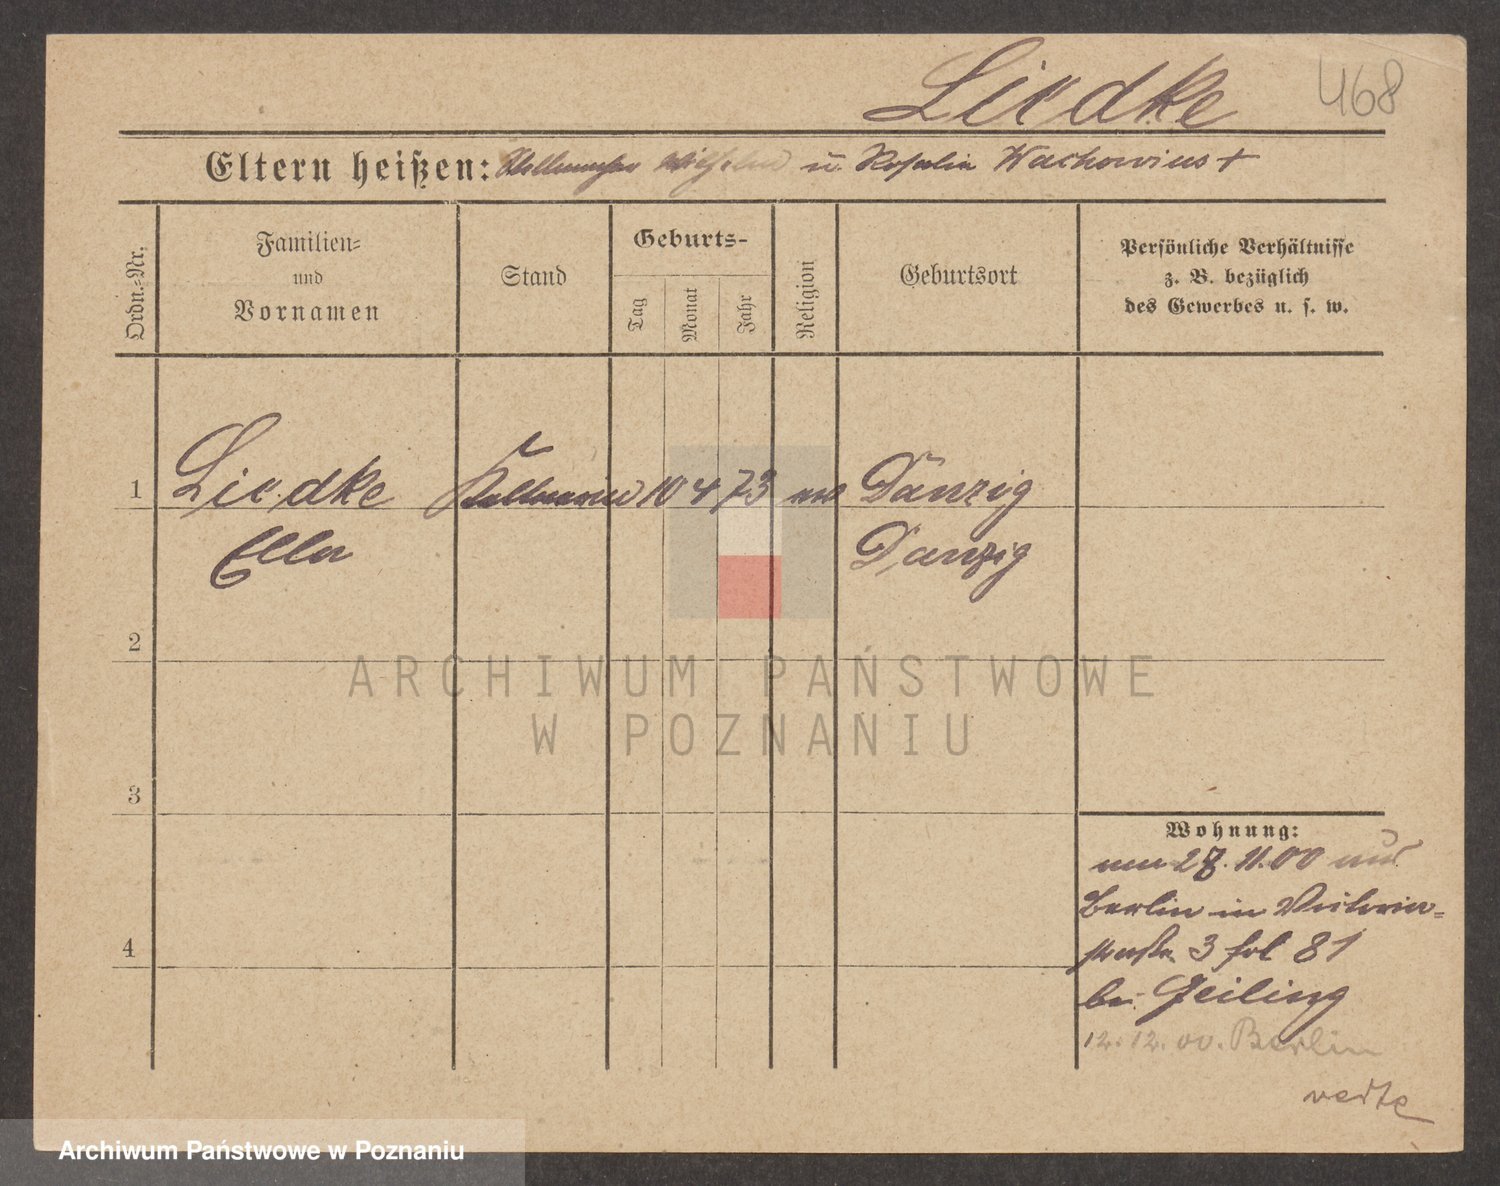 Liedke 468
Eltern heißen: Wilhelm u Rosalia Wachowius +
Ordn.-Nr.
Familien-
und
Vornamen
Stand
Geburts-
Tag
Monat
Jahr
Religion
Geburtsort
Persönliche Verhältnisse
z. B. bezüglich
des Gewerbes u. s. w.
1 Liedke Kellnerin 10 4 73 ev Danzig
Ella Danzig
2
3
4
ARCHIWUM PAŃSTWOWE
W POZNANIU
Wohnung:
27.11.00 aus
Berlin in Victoria-
straße 3 fol 81
bei Geiling
12.12.00. Berlin
verte
Archiwum Państwowe w Poznaniu